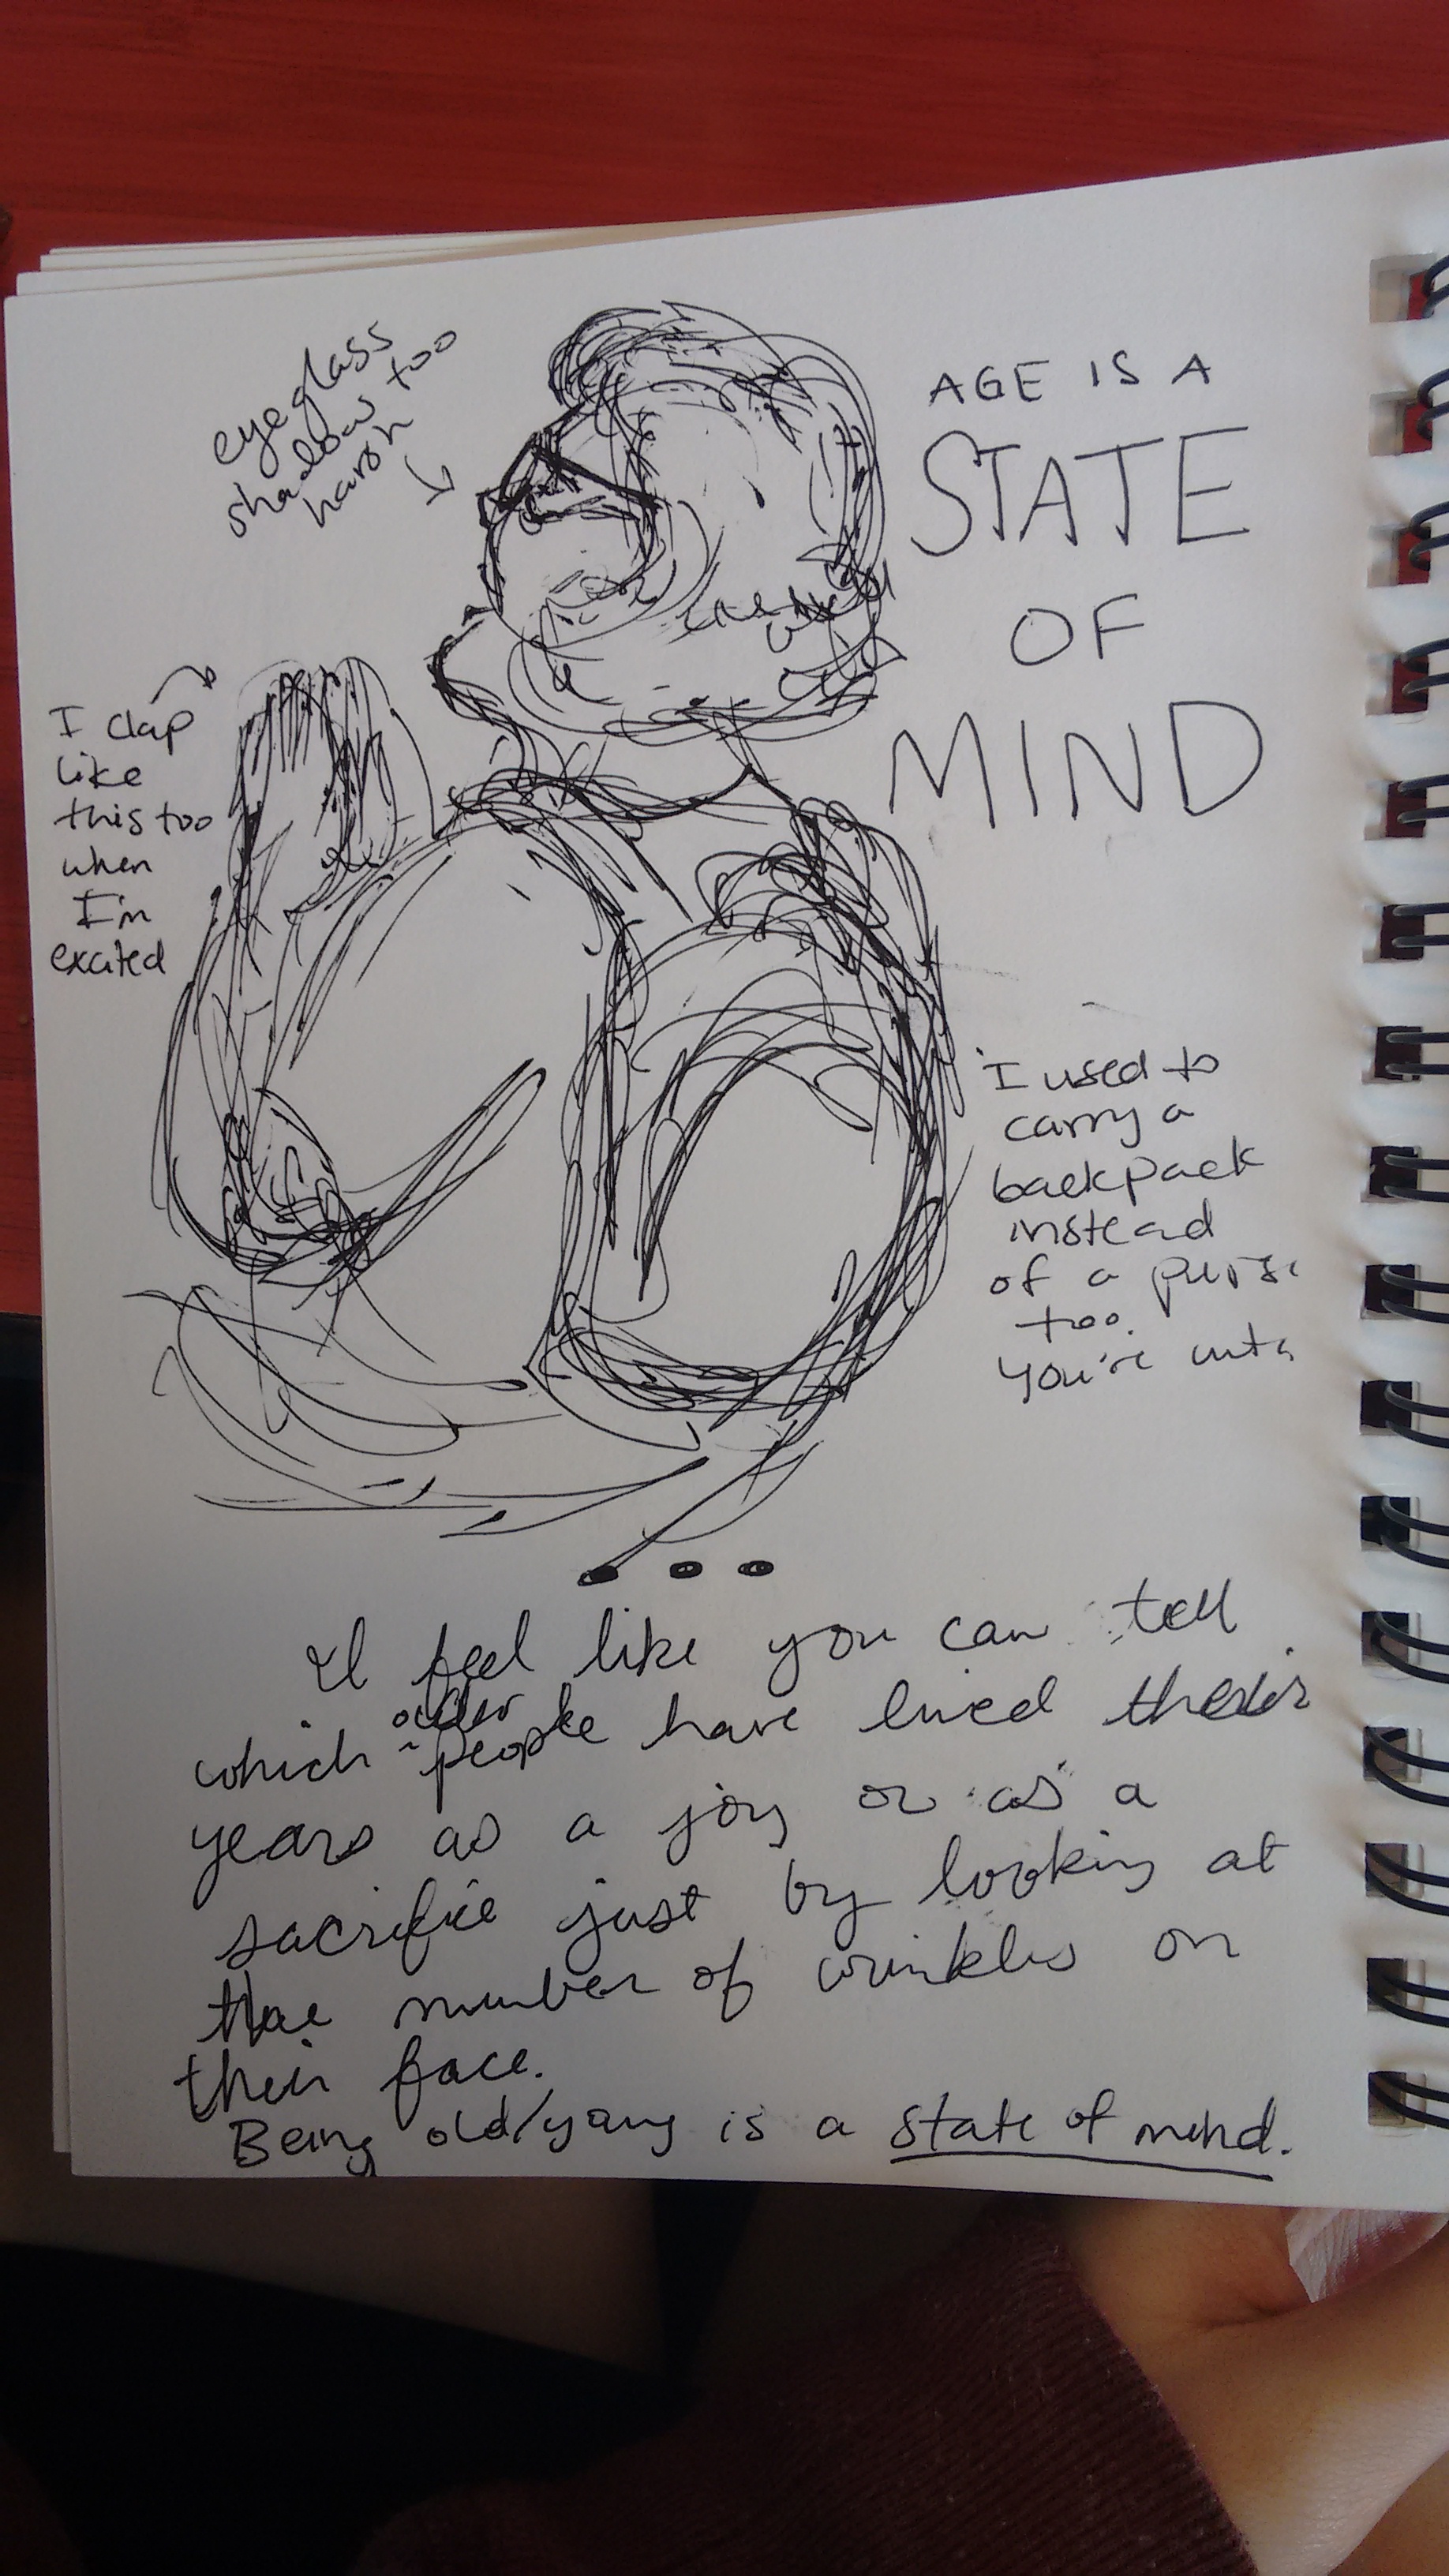 eyeglass
shadow too
harsh
AGE IS A
STATE
OF
MIND
I clap
like
this too
when
I'm
excited
I used to
carry a
backpack
instead
of a purse
too.
You're cute
I feel like you can tell
older
which people have lived their
years as a joy or as a
sacrifice just by looking at
the number of wrinkles on
their face.
Being old/young is a state of mind.